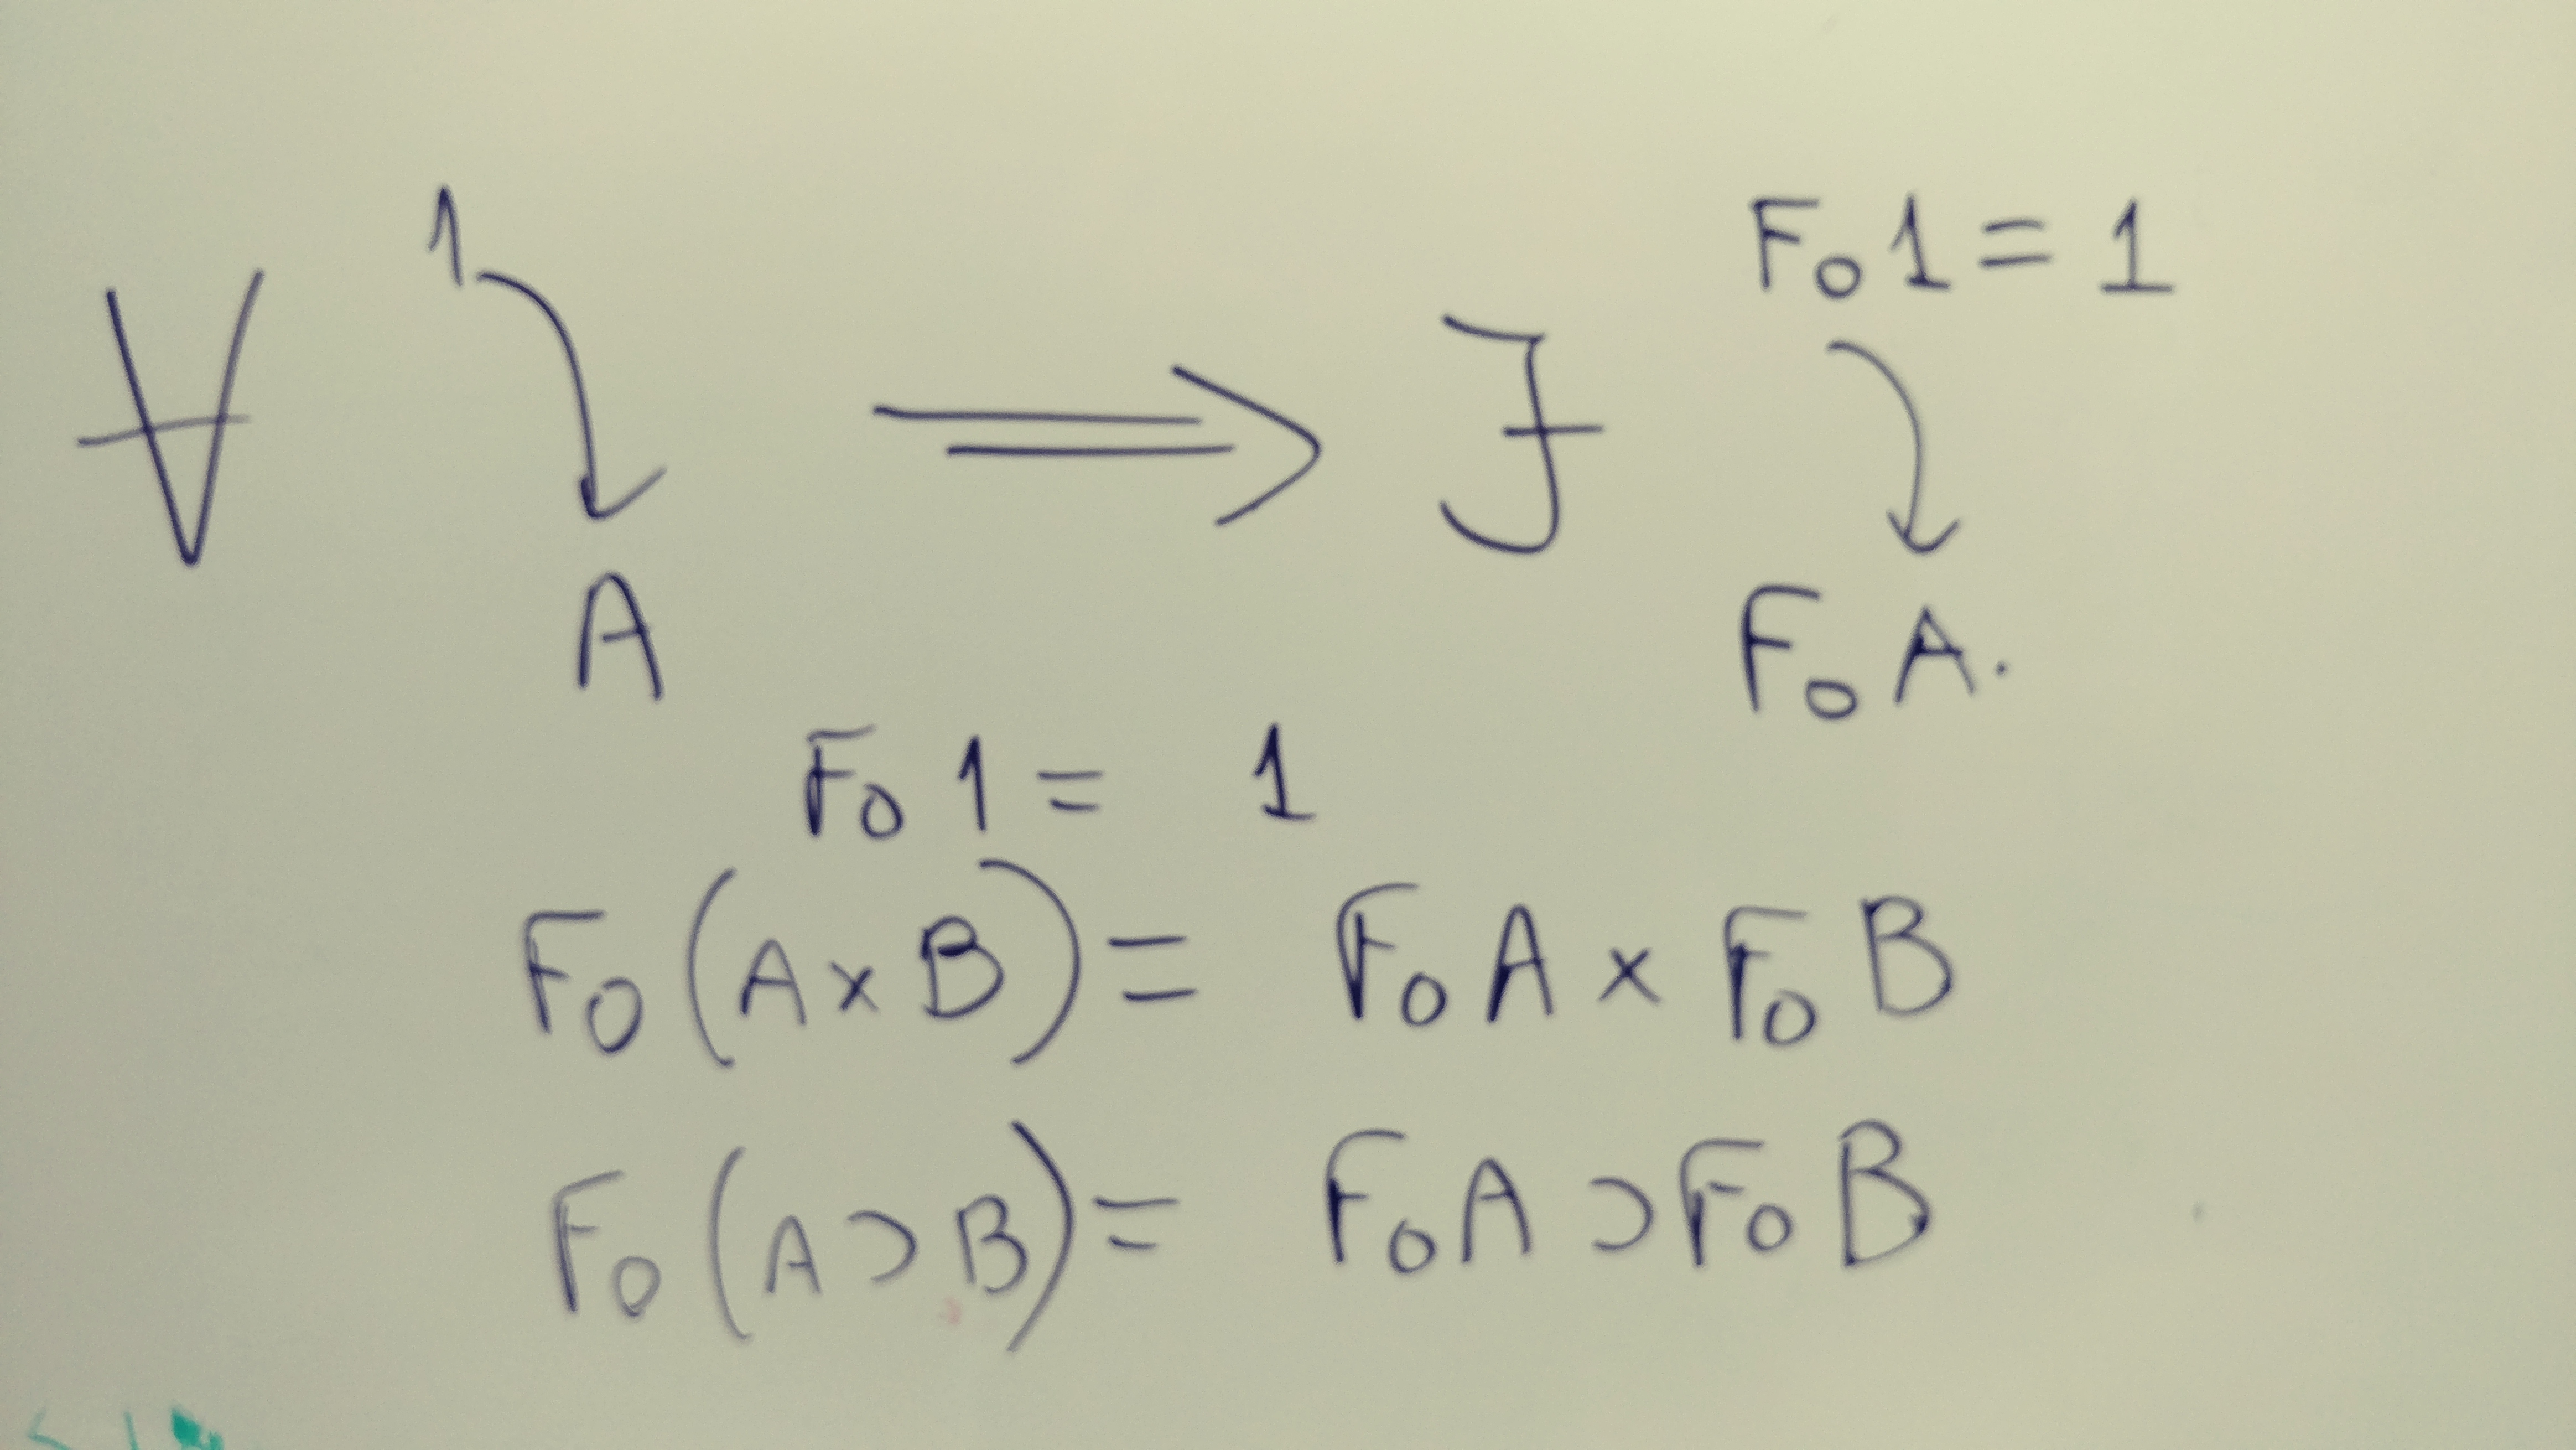 ∀ 1 → A ⟹ ∃ F₀1 = 1 → F₀A.
F₀1 = 1
F₀(A × B) = F₀A × F₀B
F₀(A ⊃ B) = F₀A ⊃ F₀B